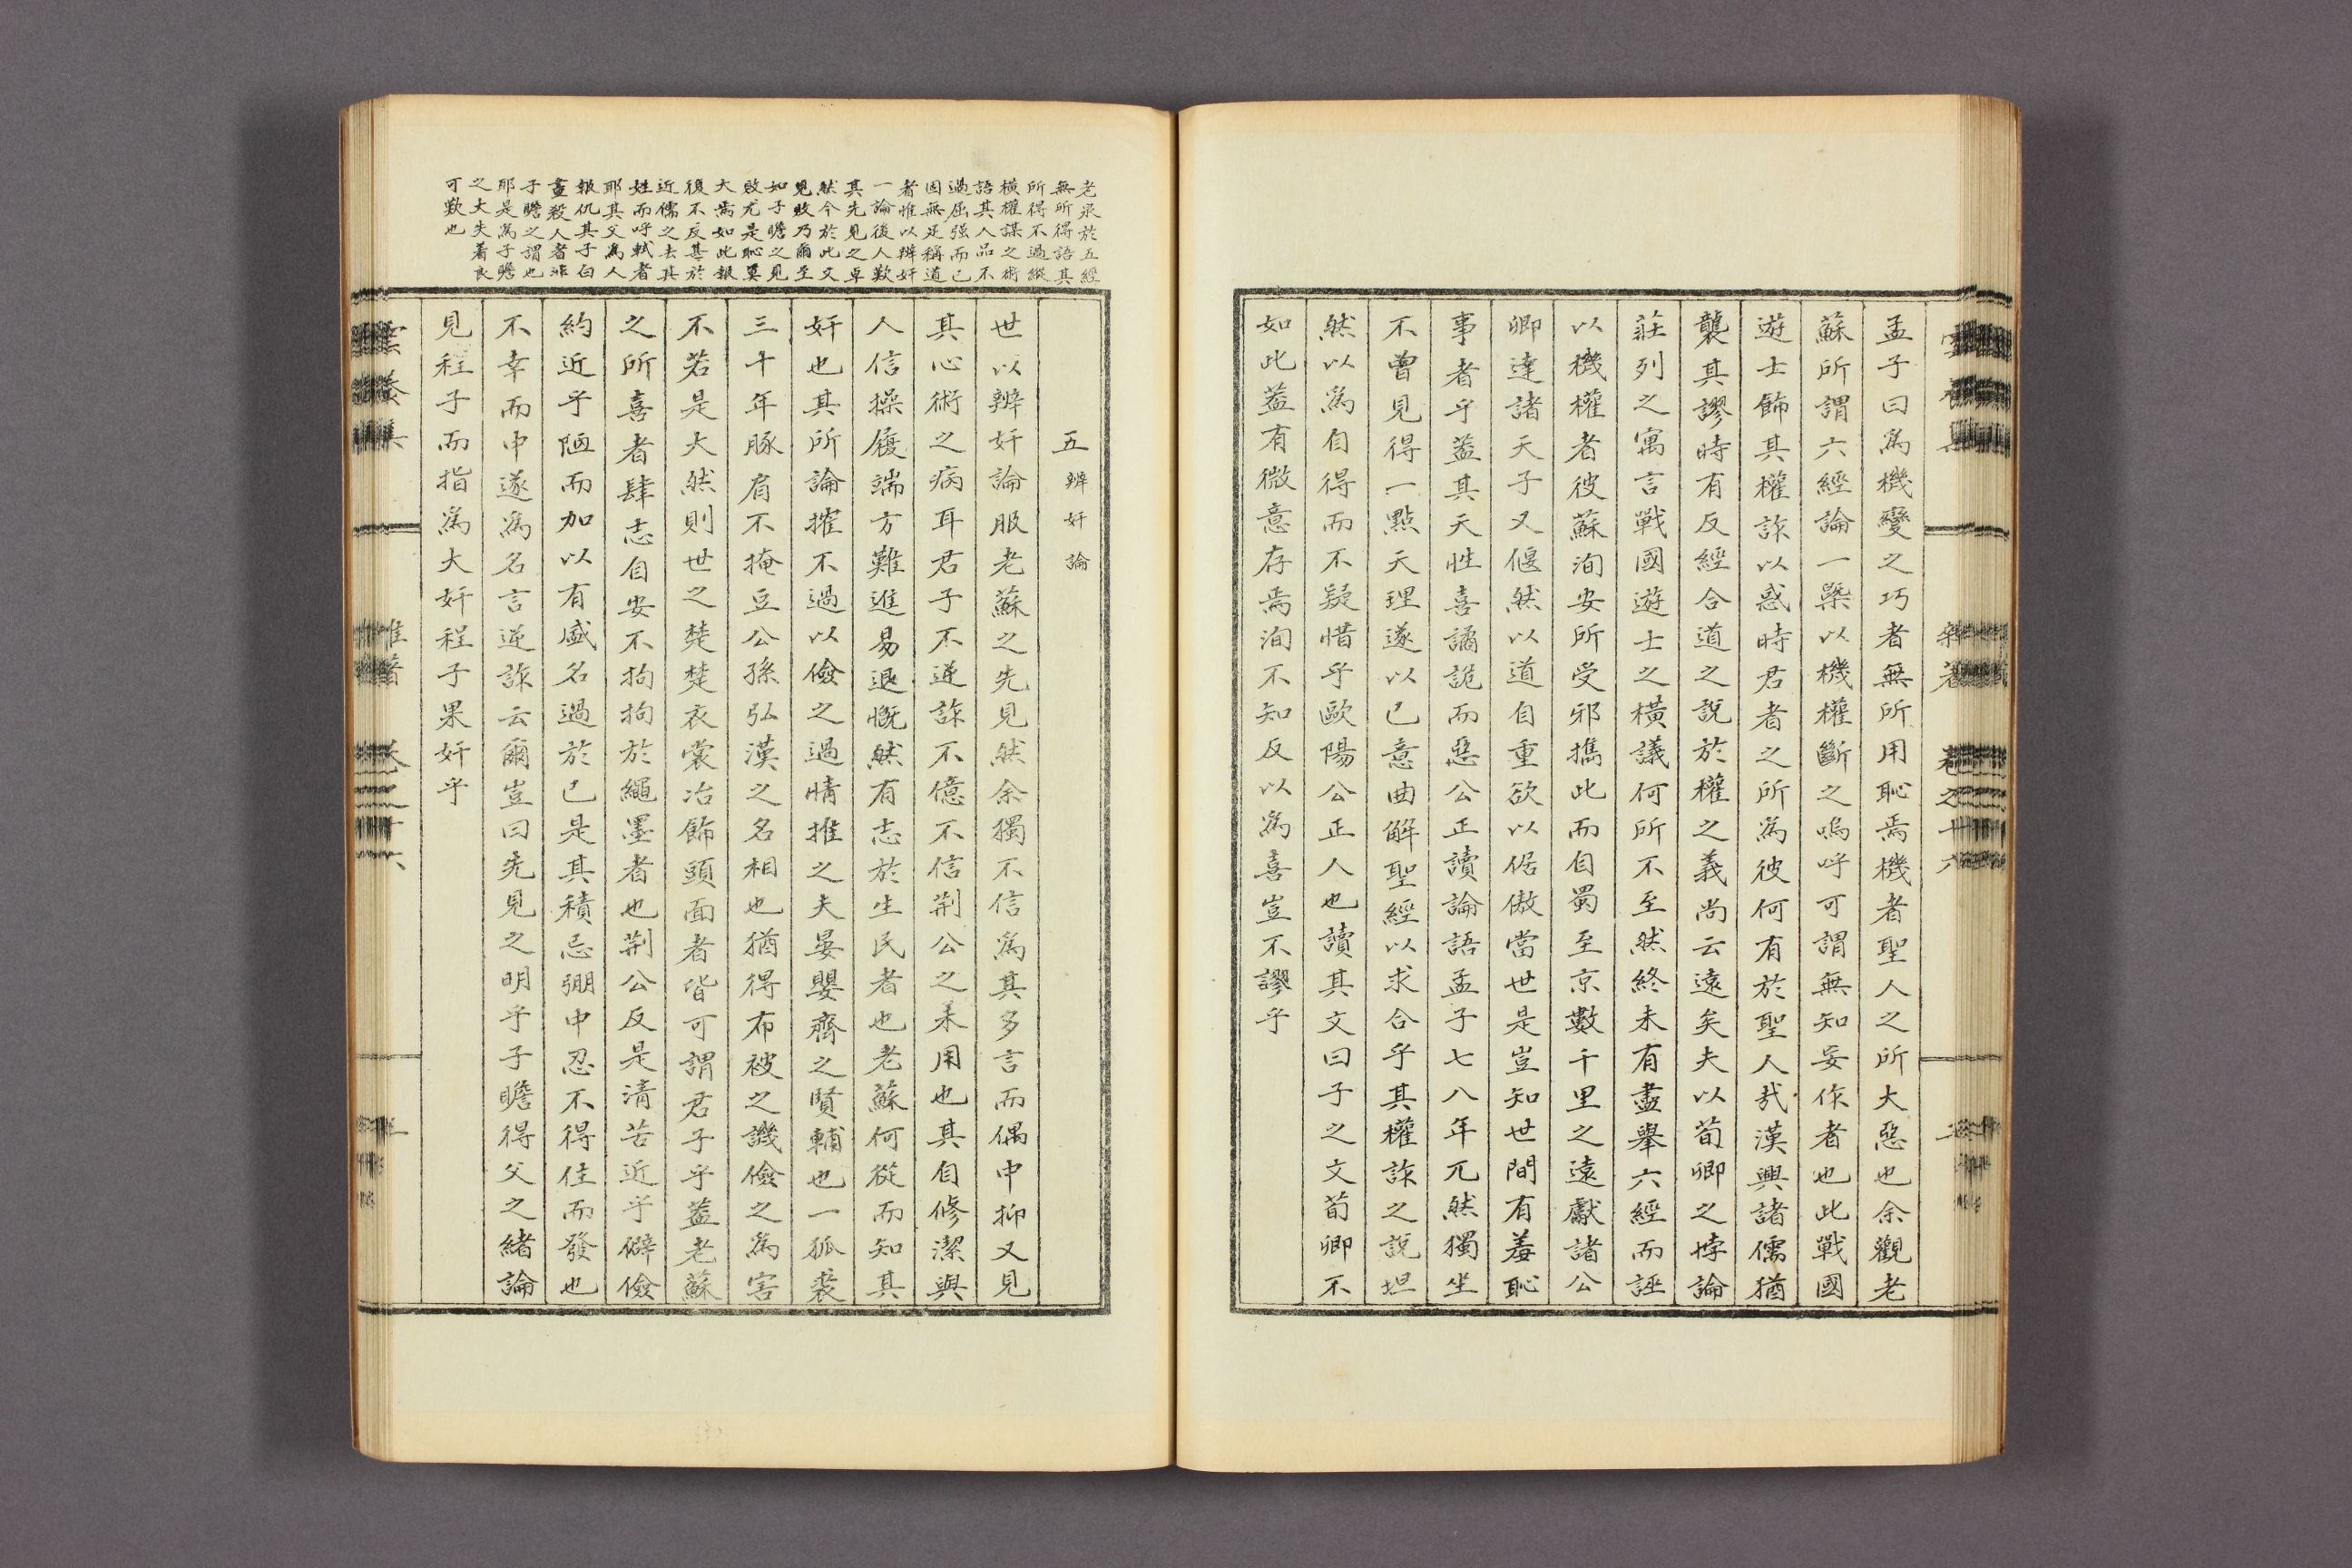 孟子曰爲機變之巧者無所用恥焉機者聖人之所大惡也余觀老
蘇所謂六經論一槩以機權斷之嗚呼可謂無知妄作者也此戰國
遊士飾其權詐以惑時君者之所爲彼何有於聖人哉漢興諸儒猶
襲其謬時有反經合道之說於權之義尚云遠矣夫以荀卿之悖論
莊列之寓言戰國遊士之橫議何所不至然終未有盡擧六經而誣
以機權者彼蘇洵安所受邪擕此而自蜀至京數千里之遠獻諸公
卿達諸天子又偃然以道自重欲以倨傲當世是豈知世間有羞恥
事者乎蓋其天性喜譎詭而惡公正讀論語孟子七八年兀然獨坐
不曾見得一點天理遂以已意曲解聖經以求合乎其權詐之說坦
然以爲自得而不疑惜乎歐陽公正人也讀其文曰子之文荀卿不
如此蓋有微意存焉洵不知反以爲喜豈不謬乎
老泉於五經
無所得語其
所得不過縱
橫權謀之術
語其人品不
過屈强而已
因無足稱道
者惟以辨奸
一論後人歎
其先見之卓
然今於此文
見敗乃爾至
如子瞻之見
敗尤是恥莫
大焉如此報
復不反甚於
近儒之去其
姓而呼軾者
耶其父爲人
報仇其子白
晝殺人者非
子瞻之謂也
耶是爲子瞻
之大失着良
可歎也
五 辨奸論
世以辨奸論服老蘇之先見然余獨不信爲其多言而偶中抑又見
其心術之病耳君子不逆詐不億不信荆公之未用也其自修潔與
人信操履端方難進易退慨然有志於生民者也老蘇何從而知其
奸也其所論搉不過以儉之過情推之夫晏嬰齊之賢輔也一狐裘
三十年豚肩不掩豆公孫弘漢之名相也猶得布被之譏儉之爲害
不若是大然則世之楚楚衣裳冶飾頭面者皆可謂君子乎蓋老蘇
之所喜者肆志自安不拘拘於繩墨者也荆公反是清苦近乎僻儉
約近乎陋而加以有盛名過於已是其積忌弸中忍不得住而發也
不幸而中遂爲名言逆詐云爾豈曰先見之明乎子瞻得父之緖論
見程子而指爲大奸程子果奸乎